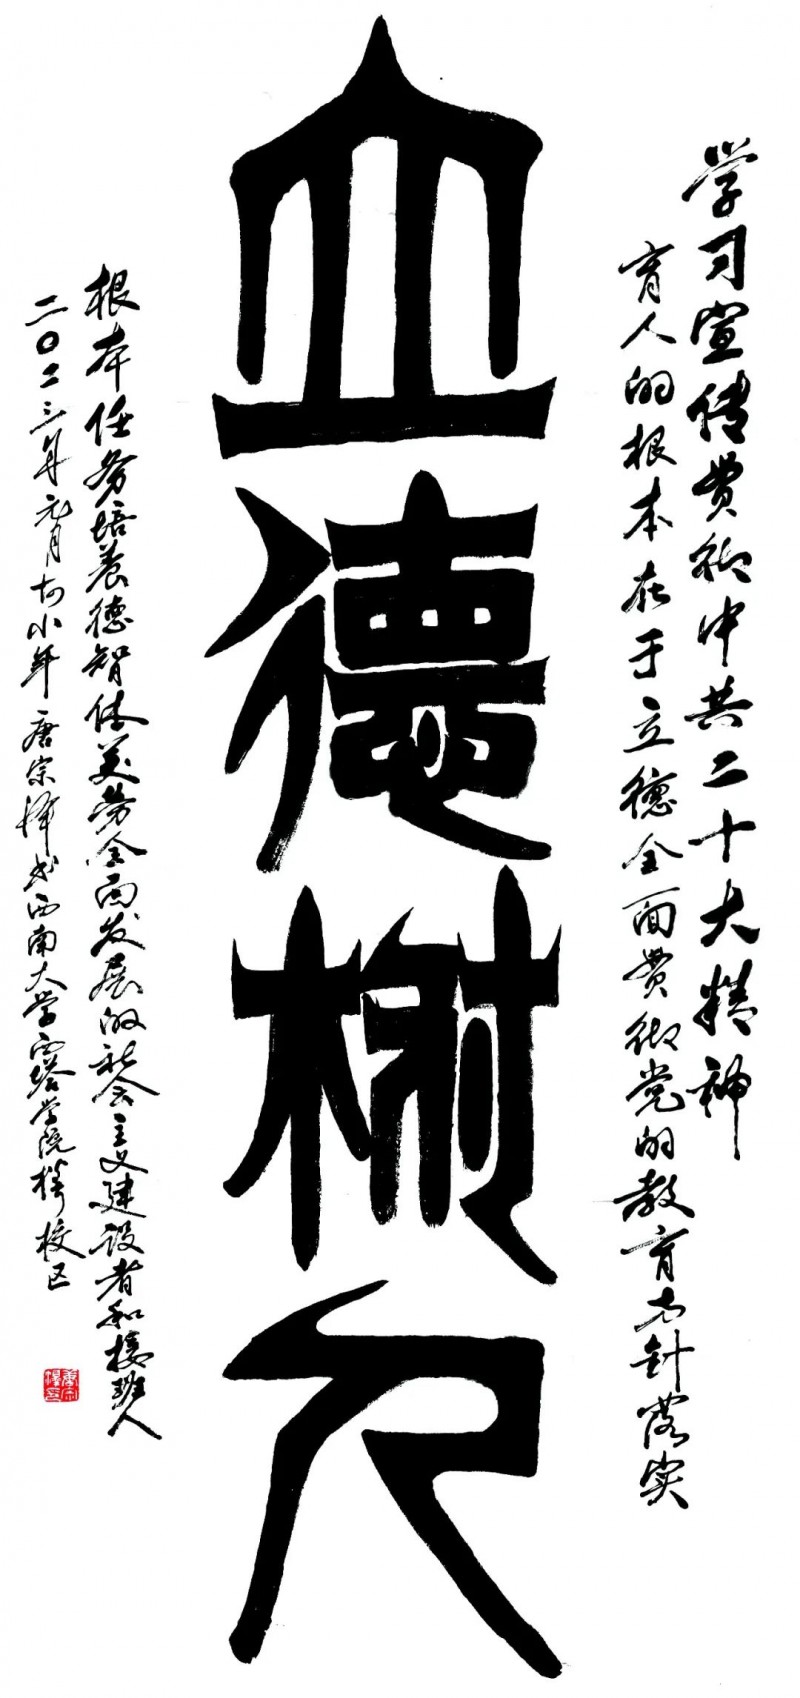 学习宣传贯彻中共二十大精神
育人的根本在于立德全面贯彻党的教育方针落实
立德樹人
根本任务培養德智体美劳全面发展的社会主义建设者和接班人
二〇二三年元月于小年唐宗泽书西南大学西塔学院校区